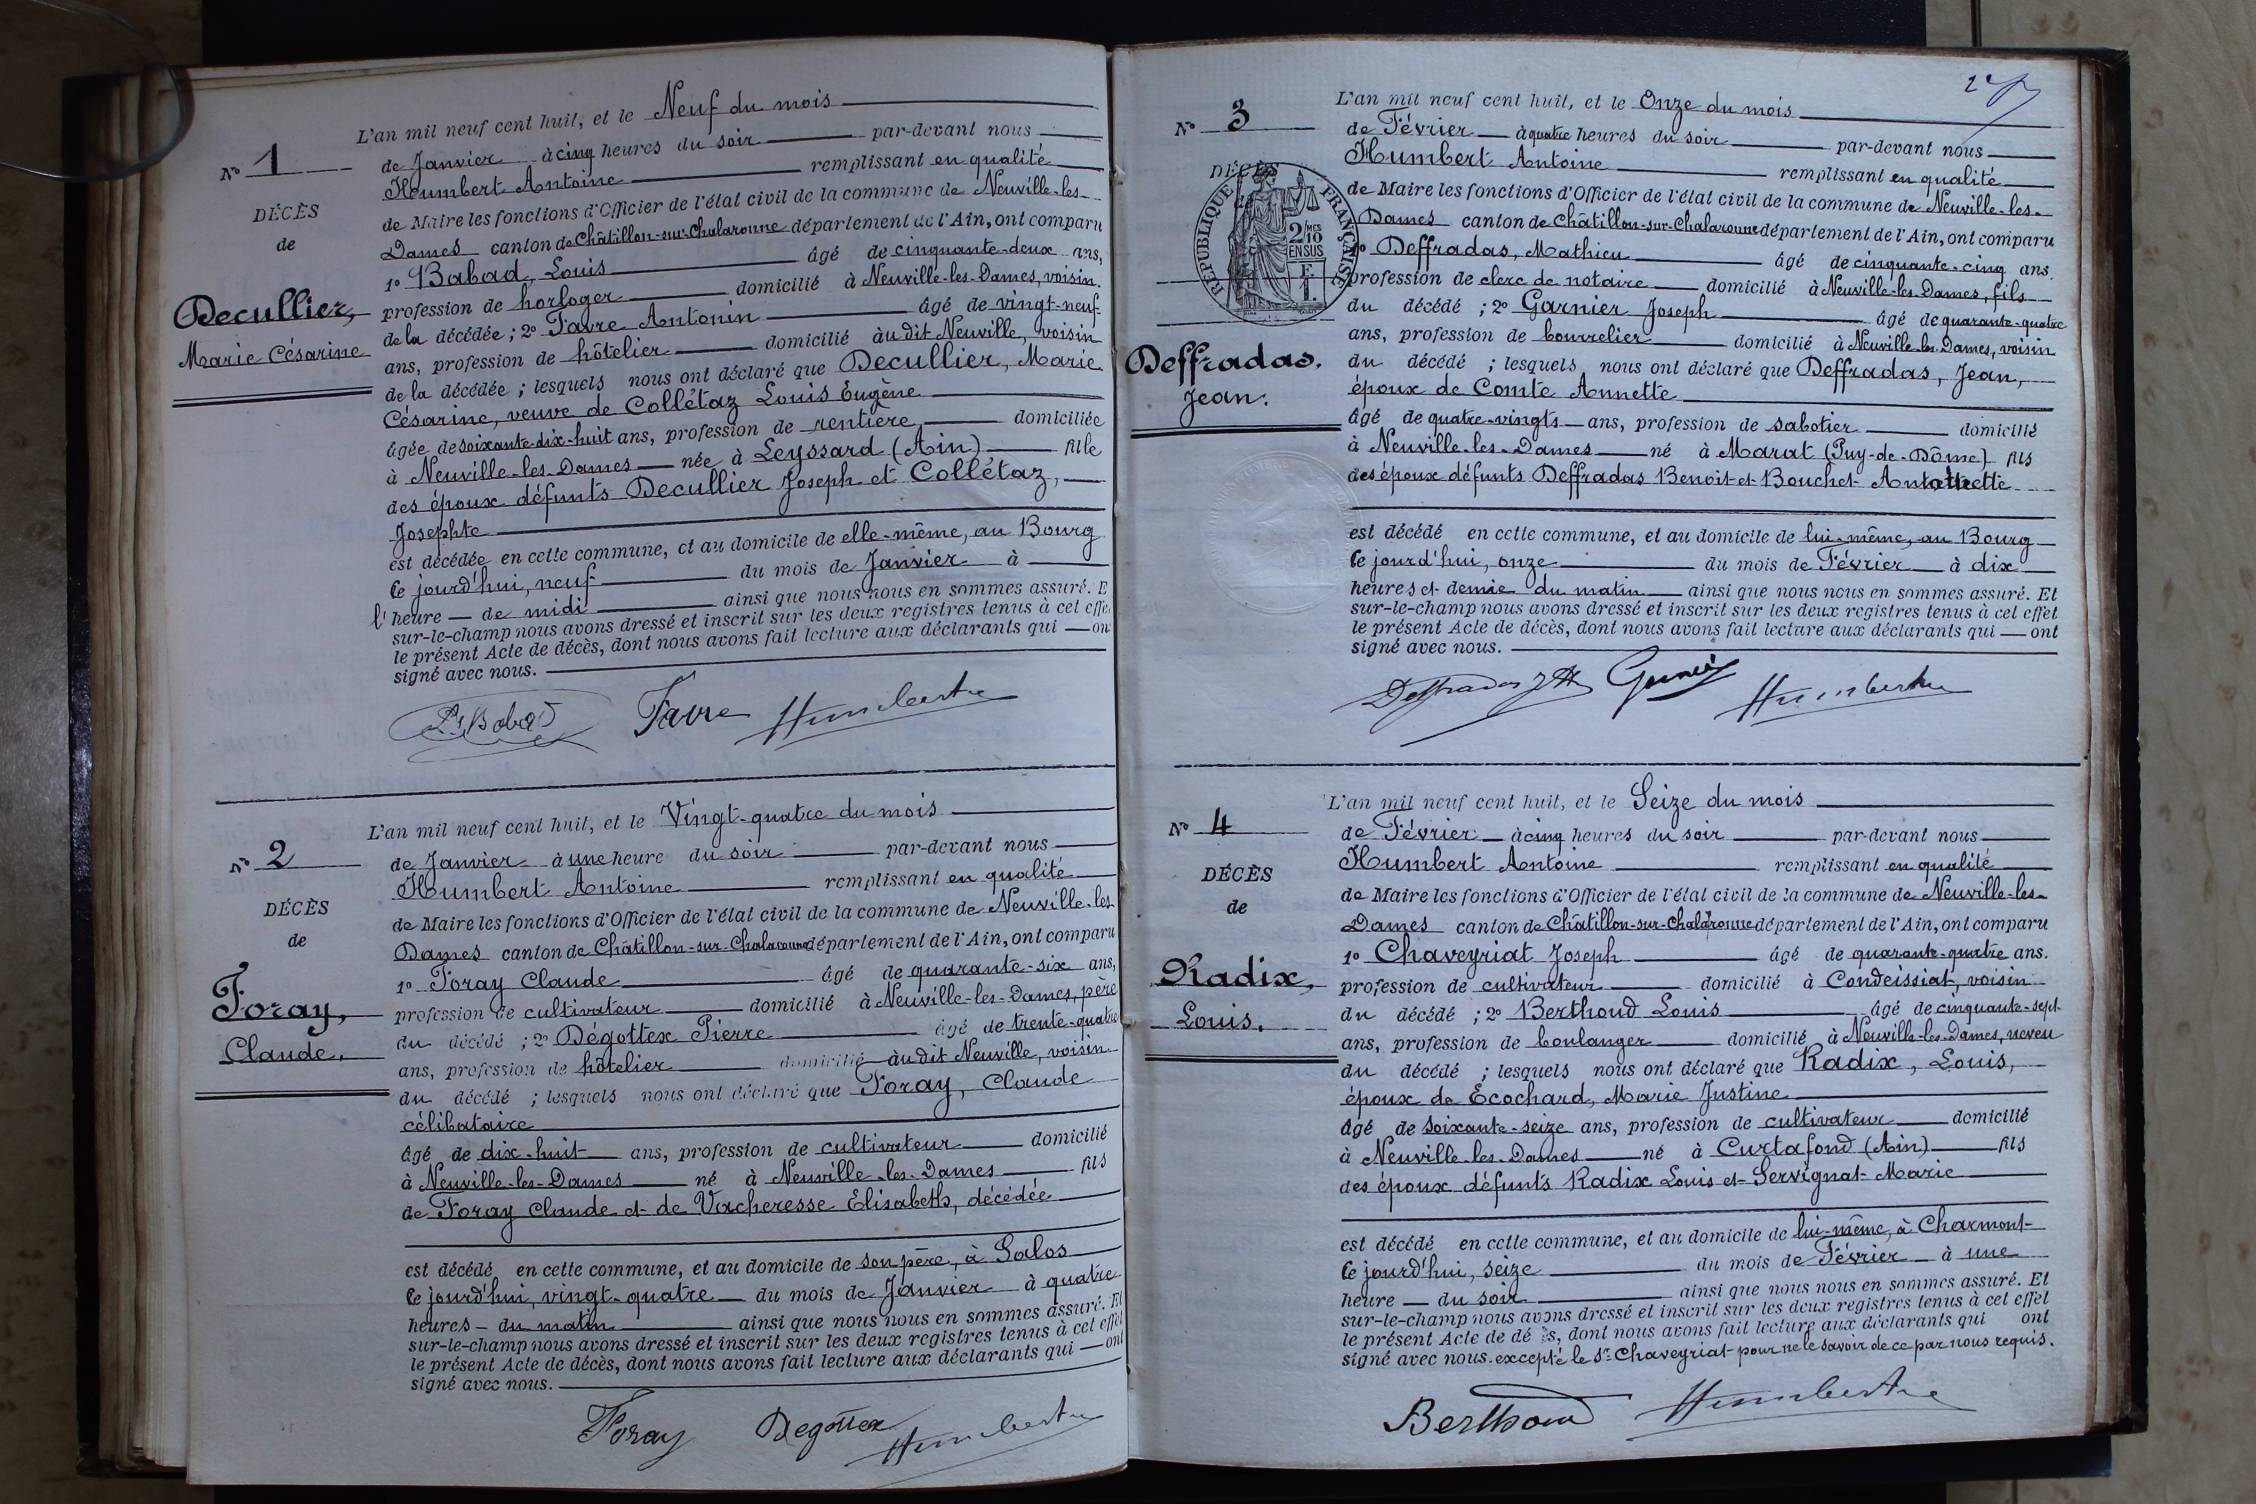 N° 1
DÉCÈS
de
Decullier,
Marie Césarine
L'an mil neuf cent huit, et le Neuf du mois
de Janvier à cinq heures du soir par-devant nous
Humbert Antoine remplissant en qualité
de Maire les fonctions d'Officier de l'état civil de la commune de Neuville-les-
Dames canton de Châtillon-sur-Chalaronne département de l'Ain, ont comparu
1° Babad, Louis âgé de cinquante-deux ans,
profession de horloger domicilié à Neuville-les-Dames, voisin
de la décédée ; 2° Favre Antonin âgé de vingt-neuf
ans, profession de hôtelier domicilié àu dit Neuville, voisin
de la décédée ; lesquels nous ont déclaré que Decullier, Marie
Césarine, veuve de Collétaz Louis Eugène
âgée de soixante-dix-huit ans, profession de rentière domiciliée
à Neuville-les-Dames née à Leyssard (Ain) fille
des époux défunts Decullier Joseph et Collétaz,
Josephte
est décédée en cette commune, et au domicile de elle-même, au Bourg
ce jourd'hui, neuf du mois de Janvier à
l'heure de midi ainsi que nous nous en sommes assuré. E
sur-le-champ nous avons dressé et inscrit sur les deux registres tenus à cet effe
le présent Acte de décès, dont nous avons fait lecture aux déclarants qui on
signé avec nous.
Ls Babad Favre Humbert
N° 2
DÉCÈS
de
Foray,
Claude.
L'an mil neuf cent huit, et le Vingt-quatre du mois
de Janvier à une heure du soir par-devant nous
Humbert Antoine remplissant en qualité
de Maire les fonctions d'Officier de l'état civil de la commune de Neuville-les
Dames canton de Châtillon-sur-Chalaronne département de l'Ain, ont comparu
1° Foray Claude âgé de quarante-six ans,
profession de cultivateur domicilié à Neuville-les-Dames, père
du décédé ; 2° Dégottex Pierre âgé de trente-quatre
ans, profession de hôtelier domicilié àu dit Neuville, voisin
du décédé ; lesquels nous ont déclaré que Foray, Claude
célibataire
âgé de dix-huit ans, profession de cultivateur domicilié
à Neuville-les-Dames né à Neuville-les-Dames fils
de Foray Claude et de Vacheresse Elisabeth, décédée
est décédé en cette commune, et au domicile de son père, à Salos
ce jourd'hui, vingt-quatre du mois de Janvier à quatre
heures - du matin ainsi que nous nous en sommes assuré. Et
sur-le-champ nous avons dressé et inscrit sur les deux registres tenus à cet effet
le présent Acte de décès, dont nous avons fait lecture aux déclarants qui ont
signé avec nous.
Foray Degottex Humbert
N° 3
DÉCÈS
RÉPUBLIQUE FRANÇAISE
2/10 MES
EN SUS
Deffradas.
Jean.
L'an mil neuf cent huit, et le Onze du mois
de Février à quatre heures du soir par-devant nous
Humbert Antoine remplissant en qualité
de Maire les fonctions d'Officier de l'état civil de la commune de Neuville-les-
Dames canton de Châtillon-sur-Chalaronne département de l'Ain, ont comparu
1° Deffradas, Mathieu âgé de cinquante-cinq ans.
profession de clerc de notaire domicilié à Neuville-les-Dames, fils
du décédé ; 2° Garnier Joseph âgé de quarante-quatre
ans, profession de bourrelier domicilié à Neuville-les-Dames, voisin
du décédé ; lesquels nous ont déclaré que Deffradas, Jean,
époux de Comte Annette
âgé de quatre-vingts ans, profession de sabotier domicilié
à Neuville-les-Dames né à Marat (Puy-de-Dôme) fils
des époux défunts Deffradas Benoit et Bouchet
est décédé en cette commune, et au domicile de lui-même, au Bourg
ce jourd'hui, onze du mois de Février à dix
heures et demie du matin ainsi que nous nous en sommes assuré. Et
sur-le-champ nous avons dressé et inscrit sur les deux registres tenus à cet effet
le présent Acte de décès, dont nous avons fait lecture aux déclarants qui ont
signé avec nous.
Deffradas Humbert
N° 4
DÉCÈS
de
Radix,
Louis.
L'an mil neuf cent huit, et le Seize du mois
de Février à cinq heures du soir par-devant nous
Humbert Antoine remplissant en qualité
de Maire les fonctions d'Officier de l'état civil de la commune de Neuville-les-
Dames canton de Châtillon-sur-Chalaronne département de l'Ain, ont comparu
1° Chaveyriat Joseph âgé de quarante-quatre ans.
profession de cultivateur domicilié à Condeissiat, voisin
du décédé ; 2° Berthoud Louis âgé de cinquante-sept
ans, profession de boulanger domicilié à Neuville-les-Dames, neveu
du décédé ; lesquels nous ont déclaré que Radix, Louis,
époux de Ecochard, Marie Justine
âgé de soixante-seize ans, profession de cultivateur domicilié
à Neuville-les-Dames né à Curtafond (Ain) fils
des époux défunts Radix Louis et Servignat Marie
est décédé en cette commune, et au domicile de lui-même, à Charmont
ce jourd'hui, seize du mois de Février à une
heure du soir ainsi que nous nous en sommes assuré. Et
sur-le-champ nous avons dressé et inscrit sur les deux registres tenus à cet effet
le présent Acte de dé ès, dont nous avons fait lecture aux déclarants qui ont
signé avec nous. excepté le Sr Chaveyriat pour ne le savoir de ce par nous requis.
Berthoud Humbert